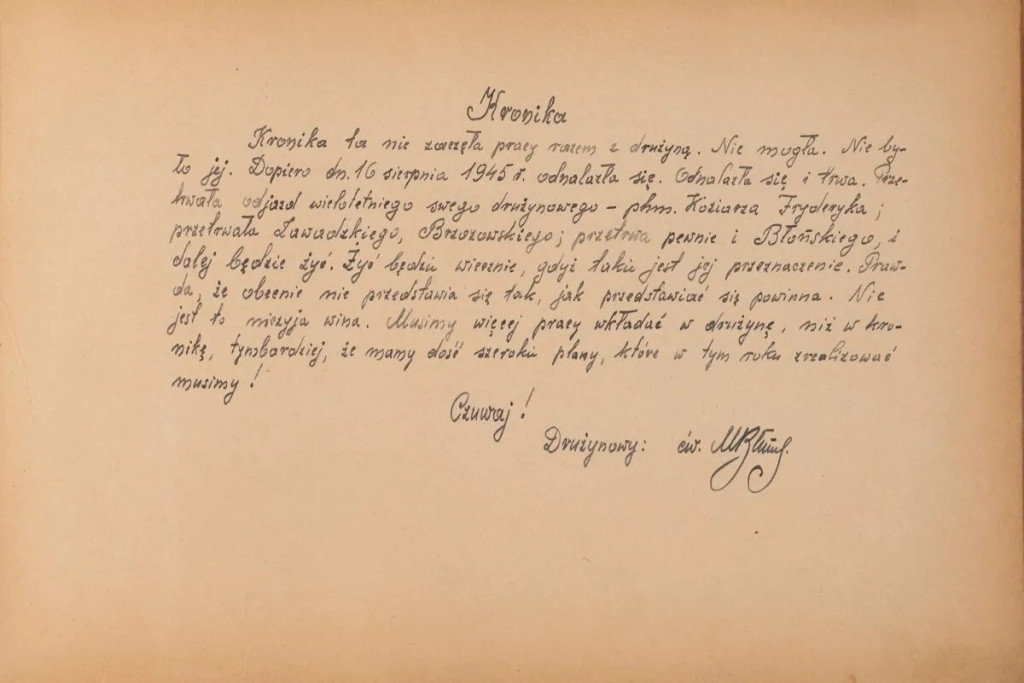 Kronika
Kronika ta nie zaczęła pracy razem z drużyną. Nie mogła. Nie by-
ło jej. Dopiero dn. 16 sierpnia 1945 r. odnalazła się. Odnalazła się i trwa. Prze-
trwała odjazd wieloletniego swego drużynowego – phm. Koziarza Fryderyka;
przetrwała Zawadzkiego, Brzozowskiego; przetrwa pewnie i Błońskiego, i
dalej będzie żyć. Żyć będzie wiecznie, gdyż takie jest jej przeznaczenie. Praw-
da, że obecnie nie przedstawia się tak, jak przedstawiać się powinna. Nie
jest to niczyja wina. Musimy więcej pracy wkładać w drużynę, niż w kro-
nikę, tymbardziej, że mamy dość szerokie plany, które w tym roku zrealizować
musimy!
Czuwaj!
Drużynowy: ćw.